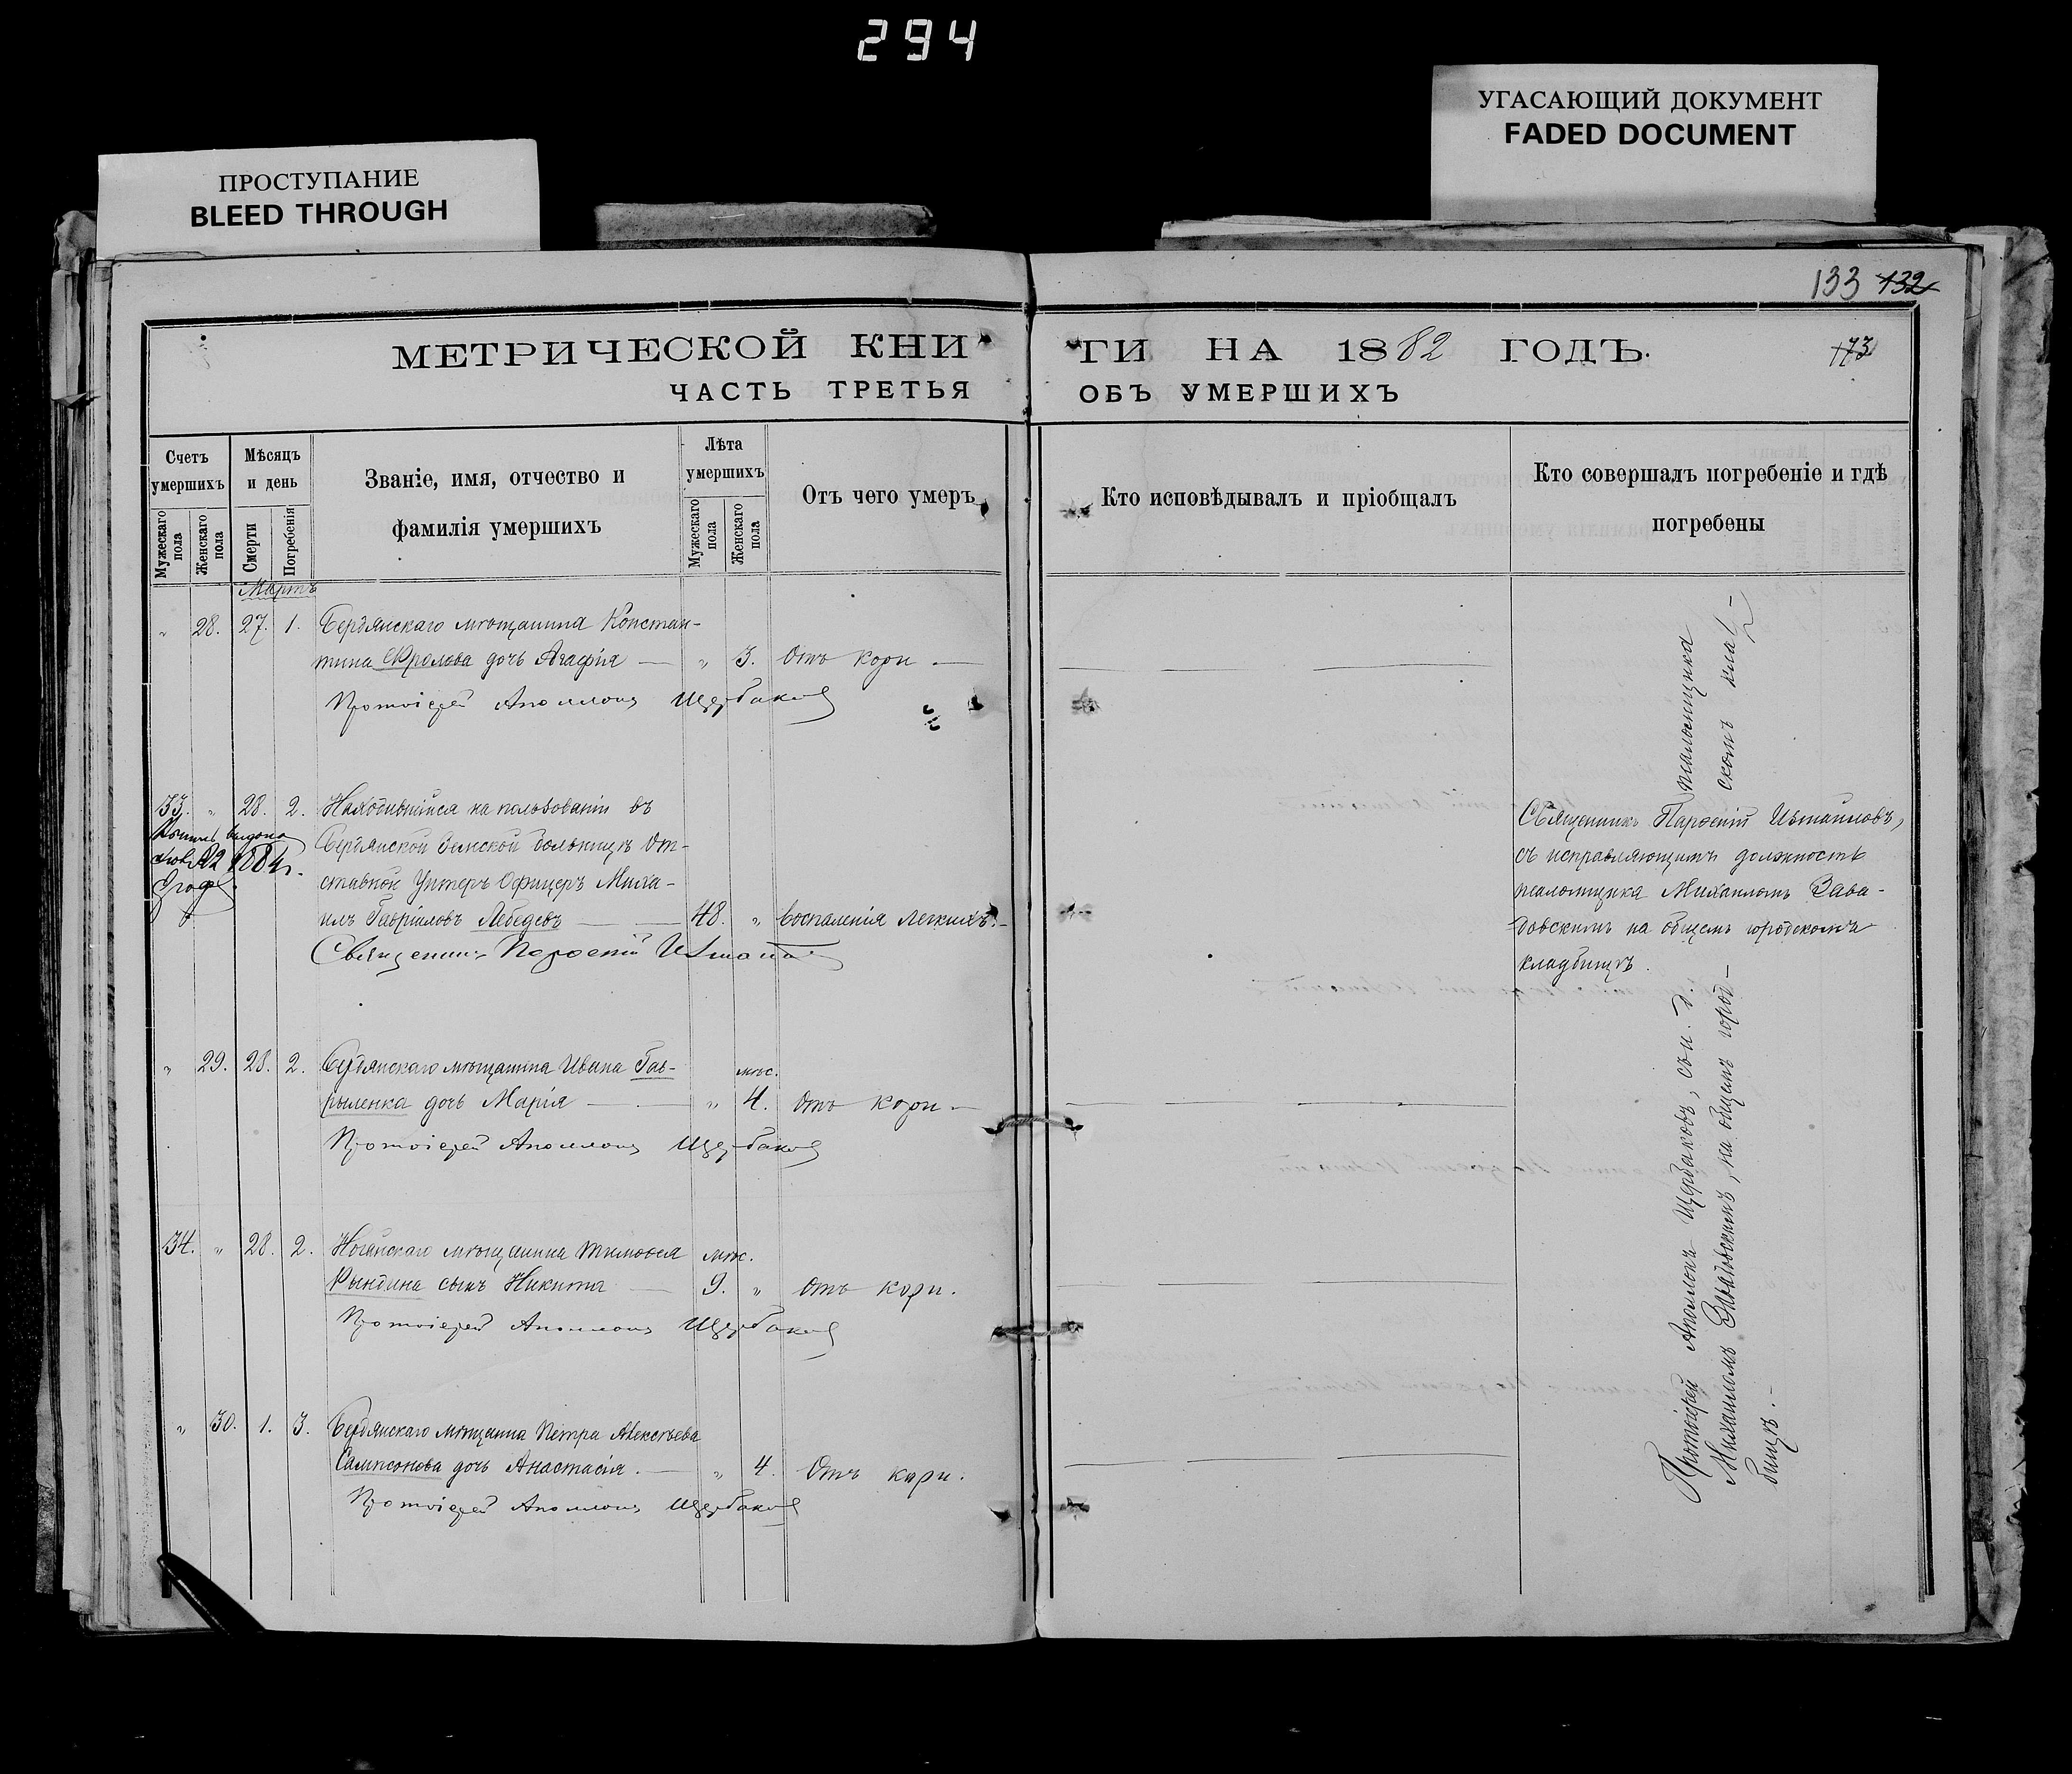 294
УГАСАЮЩИЙ ДОКУМЕНТ
FADED DOCUMENT
ПРОСТУПАНИЕ
BLEED THROUGH
133 132
МЕТРИЧЕСКОЙ КНИ
ГИ НА 1882 ГОДЪ.
173
ЧАСТЬ ТРЕТЬЯ
ОБЪ УМЕРШИХЪ
Счетъ умершихъ
Мужескаго пола
Женскаго пола
Мѣсяцъ и день
Смерти
Погребенія
Званіе, имя, отчество и
фамилія умершихъ
Лѣта умершихъ
Мужескаго пола
Женскаго пола
Отъ чего умеръ
Кто исповѣдывалъ и пріобщалъ
Кто совершалъ погребеніе и гдѣ
погребены
Мартъ
" 28. 27. 1. Бердянскаго мѣщанина Констан-
тина Фролова дочь Агафія — " 3. Отъ кори —
Протоіерей Аполлонъ Щербаковъ
33. " 28. 2. Находившійся на пользованіи въ
Бердянской Земской больницѣ От-
ставной Унтеръ Офицеръ Миха-
илъ Гавріиловъ Лебедевъ — 48. " Воспаленія легкихъ. —
Священникъ Парѳеній Измаиловъ
выдана
1884 г.
Священникъ Парѳеній Измаиловъ,
съ исправляющимъ должность
псаломщика Михаиломъ Зава-
довскимъ на общемъ городскомъ
кладбищѣ.
" 29. 28. 2. Бердянскаго мѣщанина Ивана Гав-
рыленка дочь Марія — " 4. мѣс. Отъ кори —
Протоіерей Аполлонъ Щербаковъ
34. " 28. 2. Ногайскаго мѣщанина Тимоѳея
Рындина сынъ Никита — мѣс. 9. " Отъ кори.
Протоіерей Аполлонъ Щербаковъ
" 30. 1. 3. Бердянскаго мѣщанина Петра Алексѣева
Сампсонова дочь Анастасія. — " 4. Отъ кори.
Протоіерей Аполлонъ Щербаковъ
Протоіерей Аполлонъ Щербаковъ, съ и. д. псаломщика
Михаиломъ Завадовскимъ, на общемъ город-
скомъ клад-
бищѣ. —